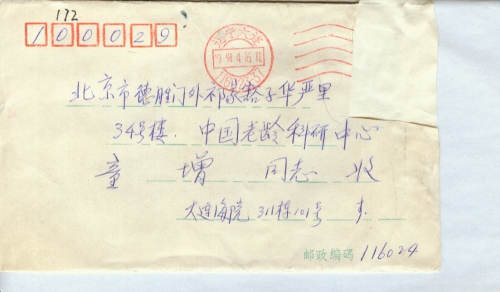 172
100029
辽宁大连
北京市德胜门外祁家豁子华严里
34号楼. 中国老龄科研中心
童 增 同志 收
大连海院 311栋101号
邮政编码 116024